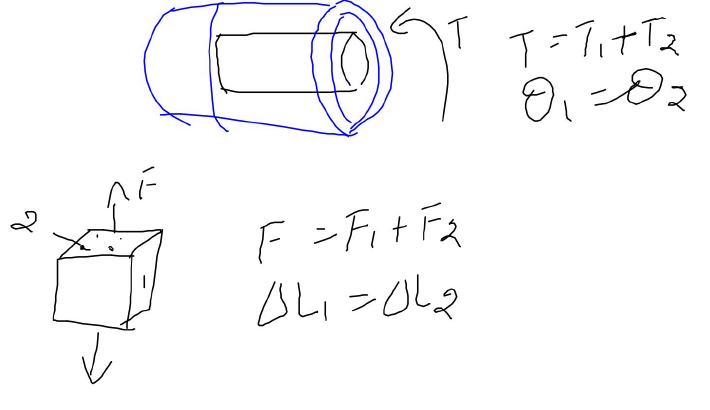 T
T = T1 + T2
θ1 = θ2
F
2
1
F = F1 + F2
ΔL1 = ΔL2